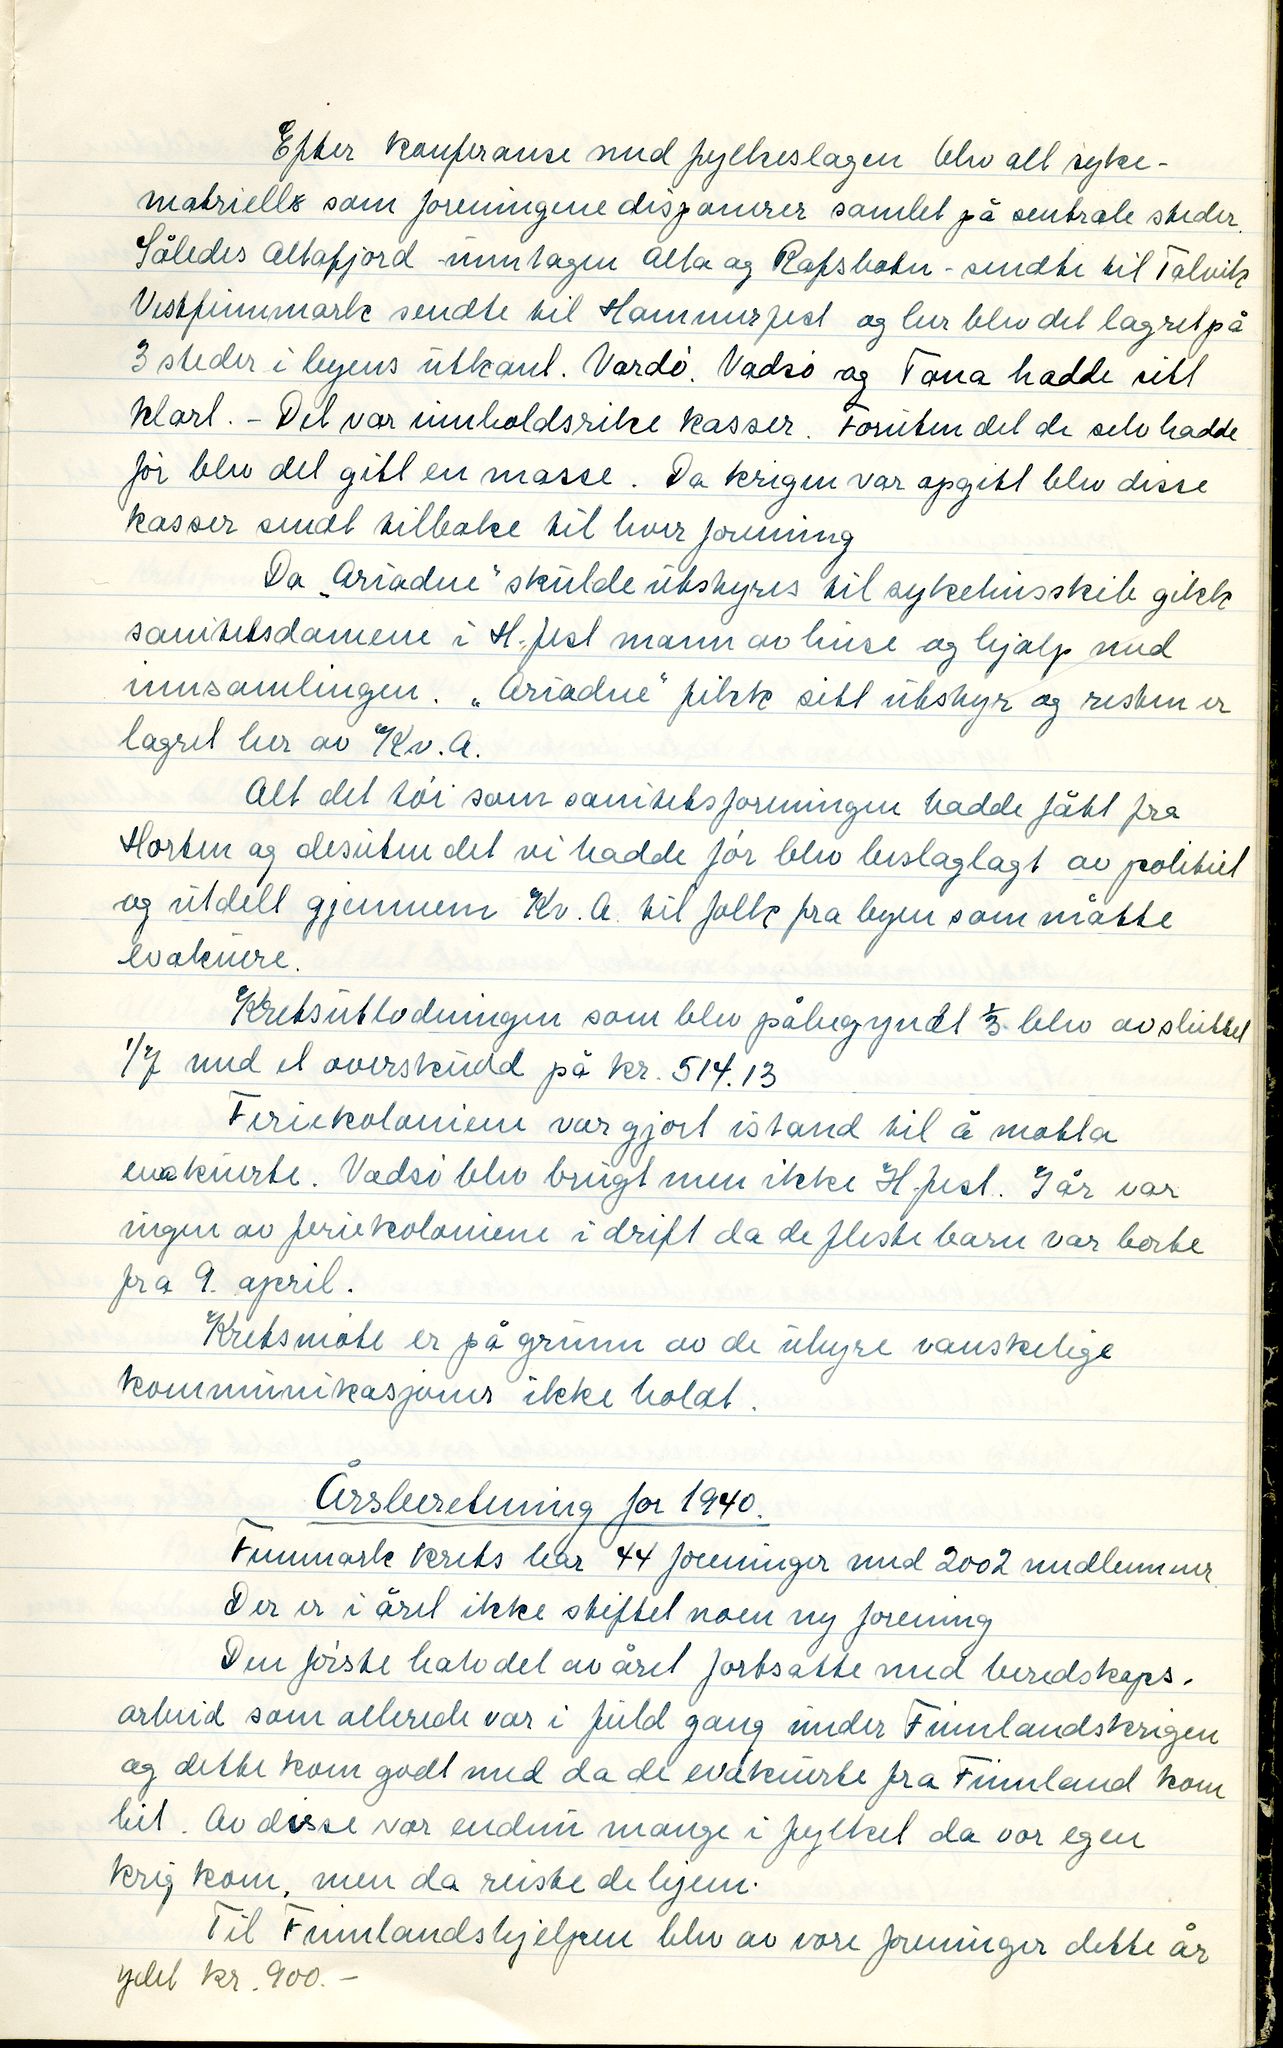 Efter konferanse med fylkeslagen blev alt syke-
matriells som foreningene disponerer samlet på sentrale steder.
Således Altafjord - unntagen Alta og Rafsbotn - sendte til Talvik
Vestfinnmark sendte til Hammerfest og her blev det lagret på
3 steder i byens utkant. Vardö. Vadsö og Tana hadde sitt
klart. - Det var innholdsrike kasser. Foruten det de selv hadde
för blev det gitt en masse. Da krigen var opgitt blev disse
kasser sendt tilbake til hver forening
Da "Ariadne" skulde utstyres til sykehusskib gikk
sanitetsdamene i H.fest mann av huse og hjalp med
innsamlingen. "Ariadne" fikk sitt utstyr og resten er
lagret her av Kv. A.
Alt det töi som sanitetsforeningen hadde fått fra
Horten og desuten det vi hadde för blev beslaglagt av politiet
og utdelt gjennem Kv. A. til folk fra byen som måtte
evakuere.
Kretsutlodningen som blev påbegyndt 1/3 blev avsluttet
1/7 med et overskudd på kr. 514.13
Feriekoloniene var gjort istand til å motta
evakuerte. Vadsö blev brugt men ikke H.fest. I år var
ingen av feriekoloniene i drift da de fleste barn var borte
fra 9. april.
Kretsmöte er på grunn av de uhyre vanskelige
kommunikasjoner ikke holdt.
Årsberetning for 1940.
Finnmark krets har 44 foreninger med 2002 medlemmer
Der er i året ikke stiftet noen ny forening
Den förste halvdel av året fortsatte med beredskaps-
arbeid som allerede var i fuld gang under Finnlandskrigen
og dette kom godt med da de evakuerte fra Finnland kom
hit. Av disse var endnu mange i fylket da vor egen
krig kom, men da reiste de hjem.
Til Finnlandshjelpen blev av vore foreninger dette år
ydet kr. 900.-